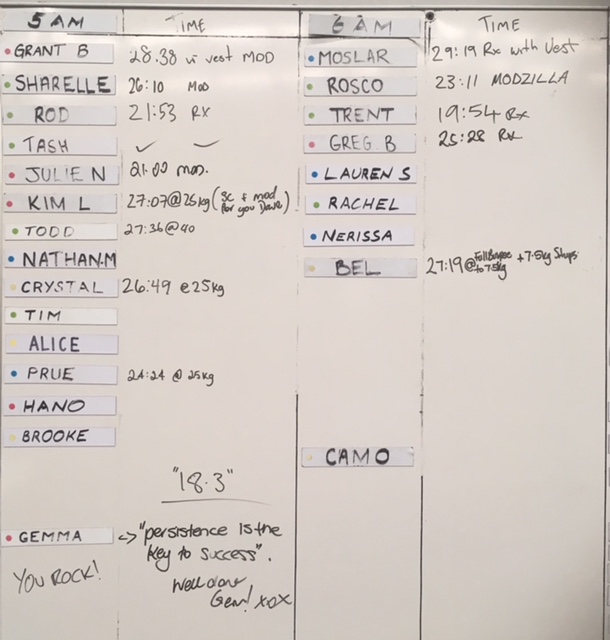 5 AM TIME
GRANT B 28.38 w vest MOD
SHARELLE 26:10 MOD
ROD 21:53 RX
TASH ✓ ✓
JULIE N 21.00 mod.
KIM L 27:07@25kg (Sc & mod for you Dave)
TODD 27:36@40
NATHAN.M
CRYSTAL 26:49 @25kg
TIM
ALICE
PRUE 24:24 @ 25kg
HANO
BROOKE
"18.3"
GEMMA <-> "persistence is the
key to success".
YOU ROCK!
Well done
Gem! xox
6 AM TIME
MOSLAR 29:19 Rx with Vest
ROSCO 23:11 MODZILLA
TRENT 19:54 Rx
GREG B 25:28 Rx
LAUREN S
RACHEL
NERISSA
BEL 27:19@ to 7.5kg + 7.5kg
CAMO